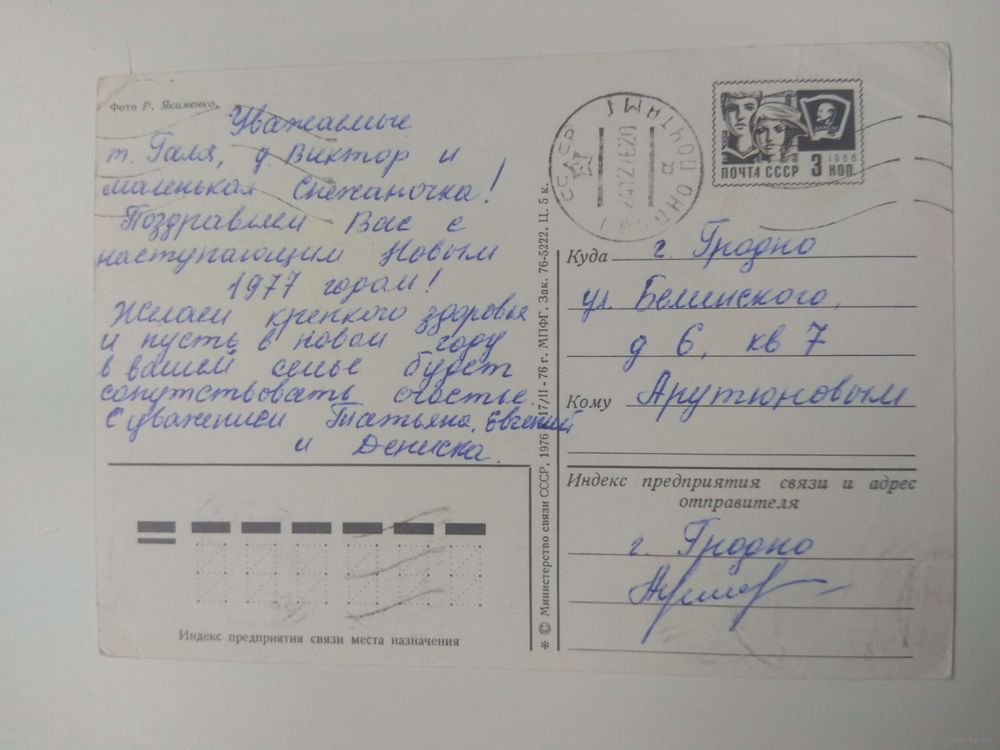 Фото Р. Якименко.
Уважаемые
т. Галя, д Виктор и
маленькая Снежаночка!
Поздравляем Вас с
наступающим Новым
1977 годом!
Желаем крепкого здоровья
и пусть в новом году
в вашей семье будет
сопутствовать счастье.
С уважением Татьяна, Евгений
и Дениска.
Индекс предприятия связи места назначения
* © Министерство связи СССР, 1976 17/II-76 г. МПФГ. Зак. 76-5222. Ц. 5 к.
СССР
ПОЧТАМТ
ГРОДНО
а
ПОЧТА СССР 3 КОП
1966
Куда г. Гродно
ул. Белинского,
д 6, кв 7
Кому Арутюновым
Индекс предприятия связи и адрес
отправителя
г. Гродно